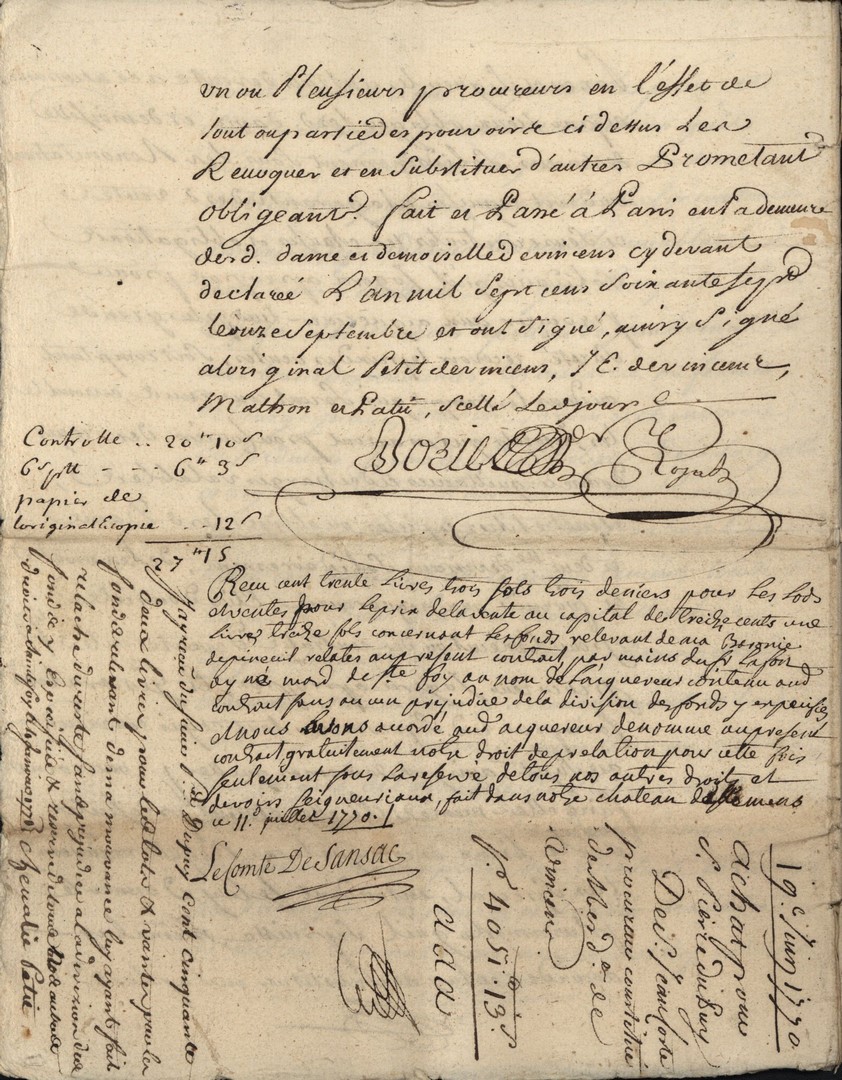 un ou Plusieurs procureurs en l'effet de
tout ou partie des pouvoirs ci dessus Les
Revoquer et en substituer d'autres Prometant
obligeant. fait et Passé à Paris en la demeure
desd. dame et demoiselle de vincens cy devant
declareé L'an mil Sept cens Soixante sept
le onze Septembre et ont Signé, ainsy Signé
aloriginal Petit de vincens, J E. de vincens,
Mathon et Patu, scellé Led jour
Controlle .. 20 ᵗᵗ 10 s
6 s p tt - - - 6 ᵗᵗ 3 s
papier de
loriginal & copie - - 12 s
27 ᵗᵗ 5
Receu cent trente Livres trois sols trois deniers pour Les Lods
et ventes pour le prix de la vente au capital de treize cents une
Livres treize sols concernant Les fonds relevant de ma Baronie
de pineuil relates au present contrat par mains du sr Lafon
ayné mard de ste foy au nom de Lacquereur contenu aud
contrat sans aucun prejudice de la division des fonds y exprimés
& nous avons acordé aud acquereur denomme au present
contrat gratuitement notre droit de prelation pour cette fois
seulement sous La reserve de tous nos autres droits et
devoirs seigneuriaux, fait dans notre chateau de
ce 11. juillet 1770.
Le Comte De Sansac
J'ay receu du sieur Dupuy Cent cinquante
deux livres pour les lots & vantes pour les
fonds relevant de ma mouvance luy ayant fait
relache du reste sans prejudice a la division des
fonds y exprimés & reservé de tous
19e Juin 1770
achat pour
s. Pierre Dupuy
De sr. Jean forte
procureur constitué
de Mer d. de
Vincens
p. 4051 ᵗᵗ 13 s